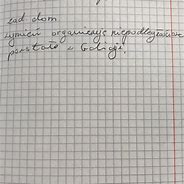 zad dom.
wymień organizacje niepodległościowe
powstałe w Galicji.